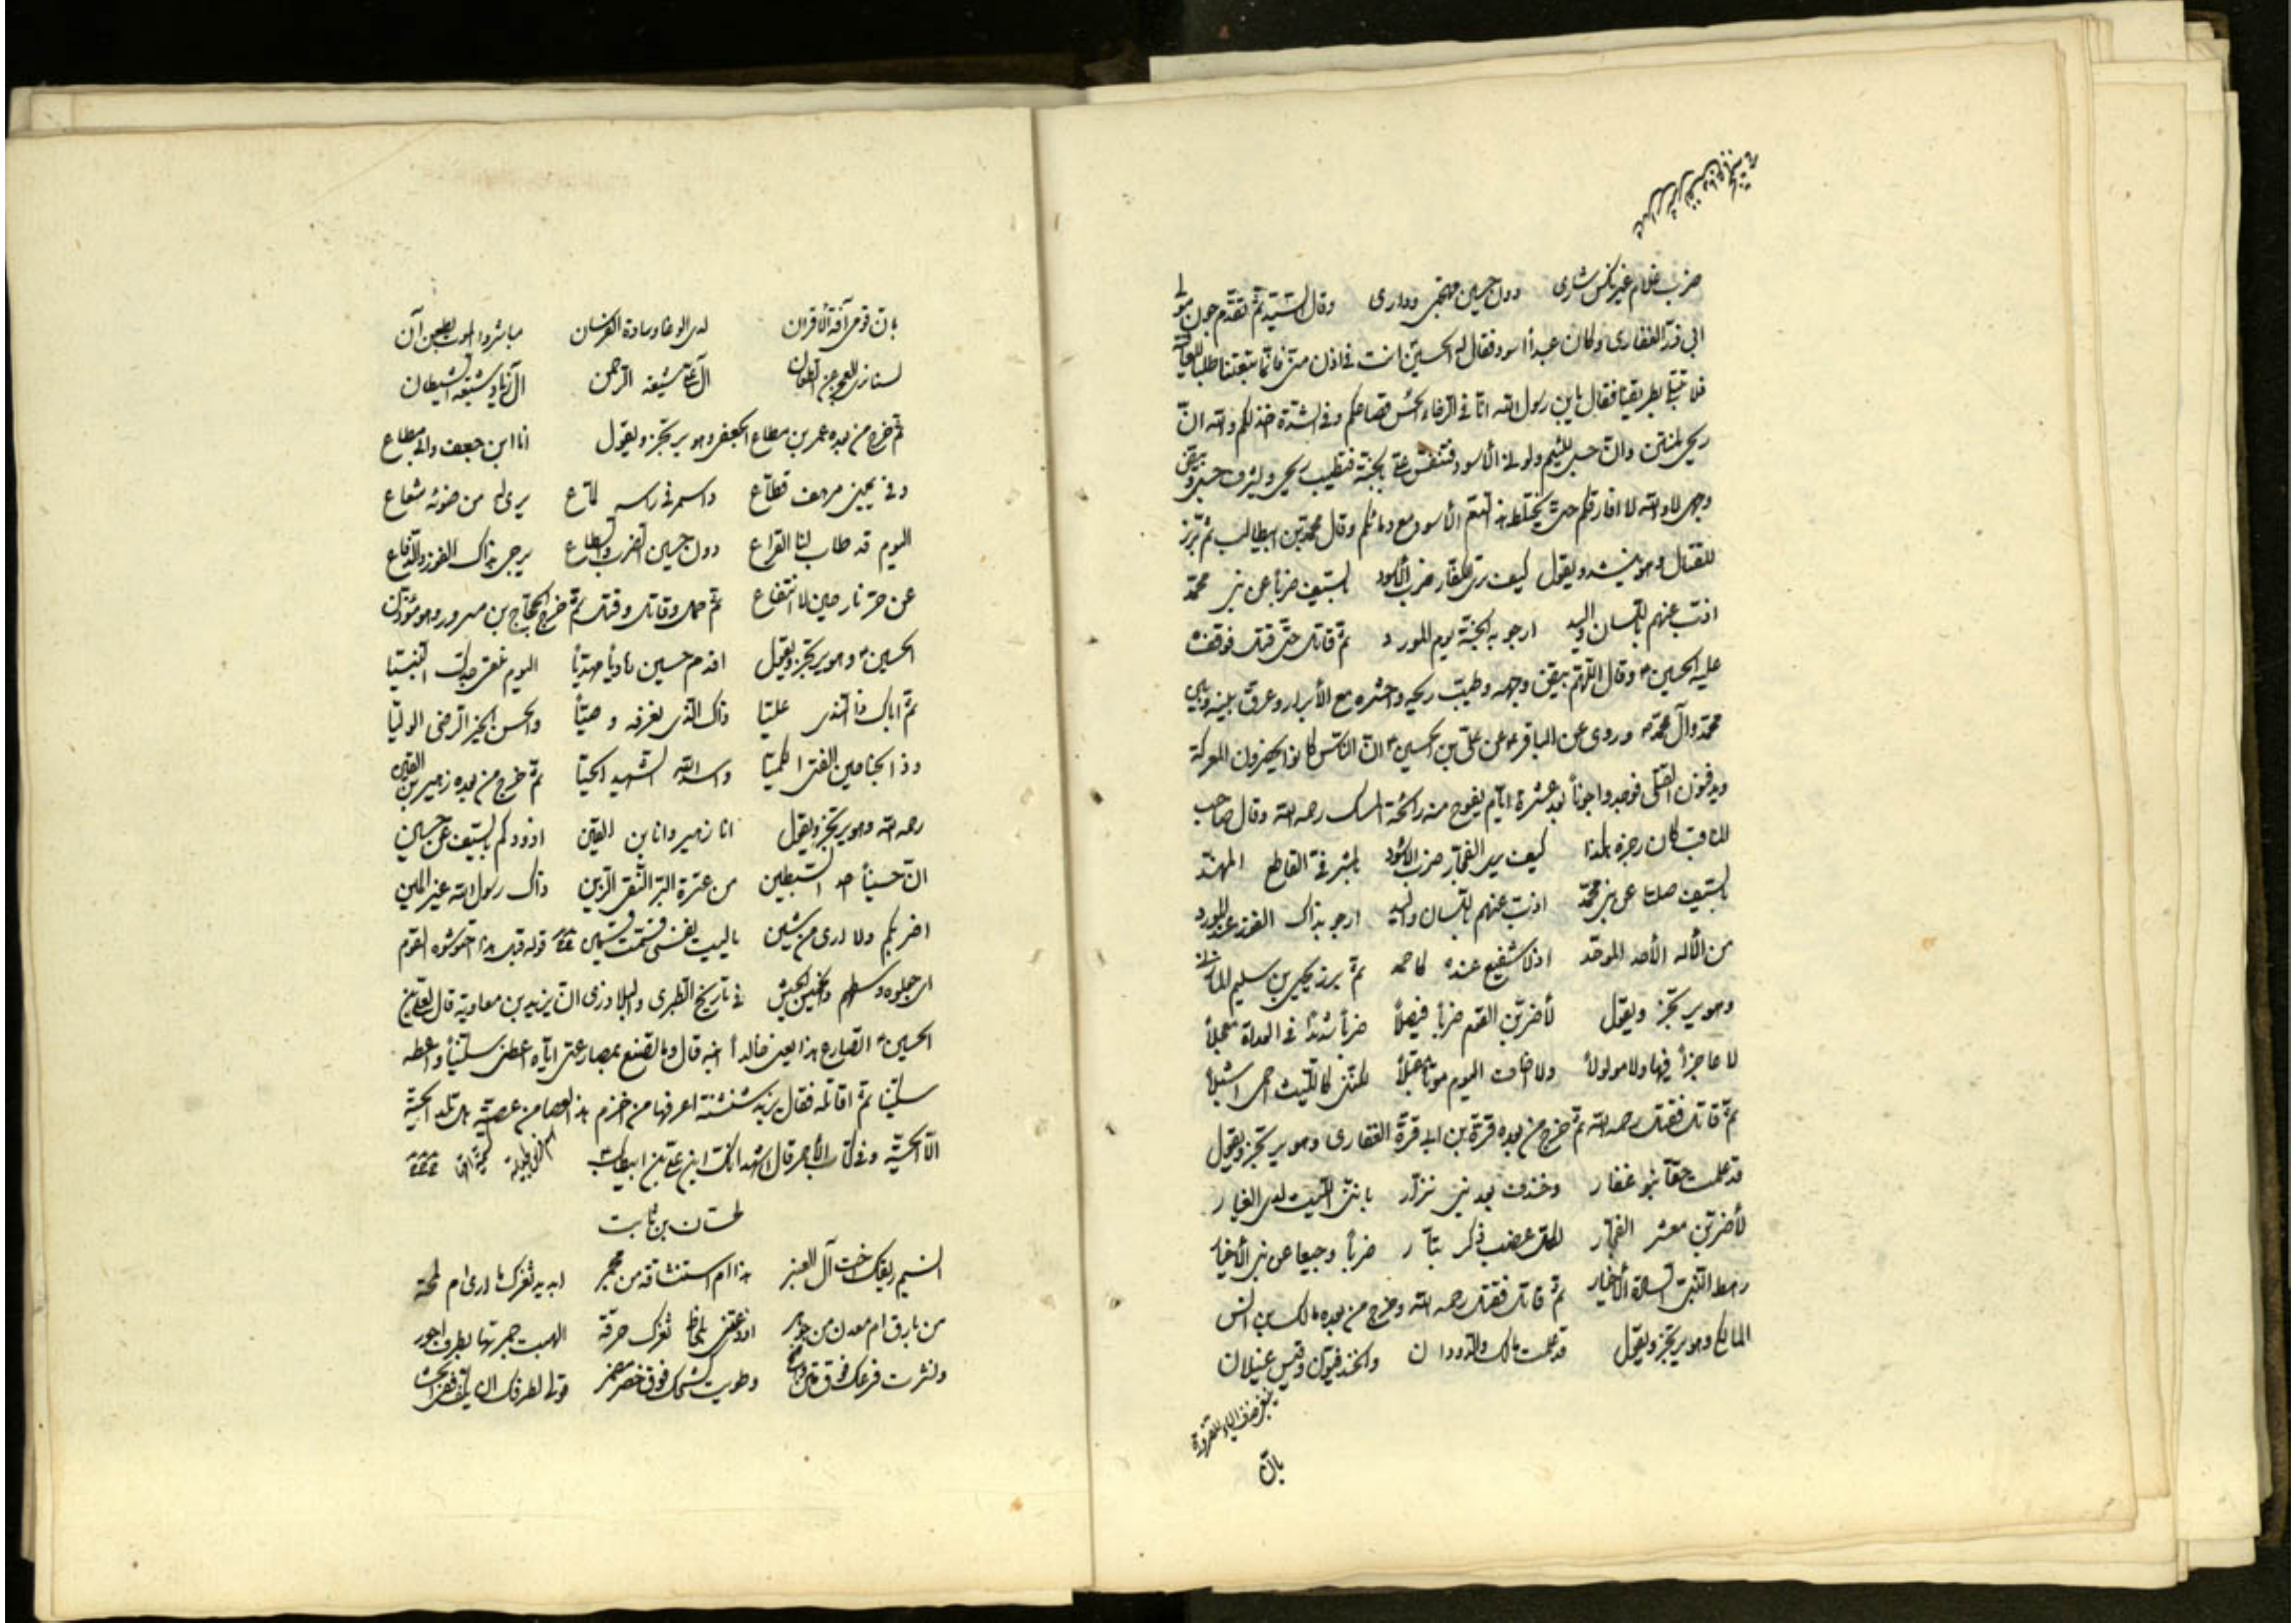 ضرب غلام غير نكس شاري دون حسين مهجتي وداري وقال السيد ثم تقدم جون مولى
ابي ذر الغفاري وكان عبدا اسود فقال له الحسين انت في اذن مني فانما تبعتنا طلبا للعافية
فلا تبتل بطريقنا فقال يابن رسول الله انا في الرخاء الحس قصاعكم وفي الشدة اخذلكم والله ان
ريحي لمنتن وان حسبي للئيم ولوني لأسود فتنفس علي بالجنة فتطيب ريحي ويشرف حسبي ويبيض
وجهي لا والله لا افارقكم حتى يختلط هذا الدم الأسود مع دمائكم وقال محمد بن ابيطالب ثم برز
للقتال وهو ينشد ويقول كيف ترى الكفار ضرب الأسود بالسيف ضربا عن بني محمد
اذب عنهم باللسان واليد ارجو به الجنة يوم المورد ثم قاتل حتى قتل فوقف
عليه الحسين وقال اللهم بيض وجهه وطيب ريحه واحشره مع الأبرار وعرف بينه وبين
محمد وآل محمد وروى عن الباقر عن علي بن الحسين ان الناس كانوا يحضرون المعركة
ويدفنون القتلى فوجدوا جونا بعد عشرة ايام يفوح منه رائحة المسك رحمه الله وقال صاحب
المناقب كان رجزه هكذا كيف يرى الفجار ضرب الاسود بالمشرفي القاطع المهند
بالسيف صلتا عن بني محمد اذب عنهم باللسان واليد ارجو بذاك الفوز عند المورد
من الأله الأحد الموحد اذ لا شفيع عنده كاحمد ثم برز يحيى بن سليم المازني
وهو يرتجز ويقول لأضربن القوم ضربا فيصلا ضربا شديدا في العداة معجلا
لا عاجزا فيها ولا مولولا ولا اخاف اليوم موتا مقبلا لكنني كالليث احمي اشبلا
ثم قاتل فقتل رحمه الله ثم خرج من بعده قرة بن ابي قرة الغفاري وهو يرتجز ويقول
قد علمت حقا بنو غفار وخندف بعد بني نزار بانني الليث لدى الغيار
لأضربن معشر الفجار بكل عضب ذكر بتار ضربا وجيعا عن بني الأخيار
رهط النبي السادة الأخيار ثم قاتل فقتل رحمه الله وخرج من بعده مالك بن انس
المالكي وهو يرتجز ويقول قد علمت مالك والدودان والخندفيون وقيس عيلان
بان
بان قومي آفة الأقران لدى الوغا وسادة الفرسان مباشروا الموت بطعن آن
لسنا نرى العجز عن الطعان آل علي شيعة الرحمن آل زياد شيعة الشيطان
ثم خرج من بعده عمر بن مطاع الجعفي وهو يرتجز ويقول انا ابن جعف وابي مطاع
وفي يميني مرهف قطاع واسمر في راسه لماع يرى له من ضوئه شعاع
اليوم قد طاب لنا القراع دون حسين الضرب والسطاع يرجى بذاك الفوز والدفاع
عن حر نار حين لا انتفاع ثم حمل وقاتل وقتل ثم خرج الحجاج بن مسرور وهو مؤذن
الحسين وهو يرتجز ويقول اقدم حسين هاديا مهديا اليوم نلقى جدك النبيا
ثم اباك ذا الندى عليا ذاك الذي نعرفه وصيا والحسن الخير الرضى الوليا
وذا الجناحين الفتى الكميا واسد الله الشهيد الحيا ثم خرج من بعده زهير بن القين
رحمه الله وهو يرتجز ويقول انا زهير وانا بن القين اذودكم بالسيف عن حسين
ان حسينا احد السبطين من عترة البر التقي الزين ذاك رسول الله غير المين
اضربكم ولا ارى من شين ياليت نفسي قسمت قسمين قوله قبل هذا احتوشوه القوم
في تاريخ الطبري والبلاذري ان يزيد بن معاوية قال لعلي بن
الحسين اتصارع هذا يعني خالدا ابنه قال وما تصنع بمصارعتي اياه اعطني سكينا واعطه
سكينا ثم اقاتله فقال يزيد شنشنة اعرفها من اخزم هذا العصا من عصية هل تلد الحية
الا الحية وفي كتاب الأحمر قال اشهد انك ابن علي بن ابيطالب
لحسان بن ثابت
انسيم ريقك اخت آل العنبر هذا ام استنشاقة من مجمر ابديد ثغرك ما ارى ام لمحة
من بارق ام معدن من جوهر
ونشرت فرعك فوق متن واضح وطويت كشحك فوق خصر مضمر قولي لطرفك ان